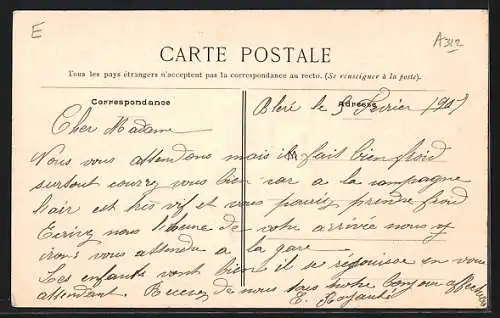 E
A312
CARTE POSTALE
Tous les pays étrangers n'acceptent pas la correspondance au recto. (Se renseigner à la poste).
Correspondance
Adresse
Bléré le 9 Fevrier 1907
Cher Madame
Nous vous attendons mais il fait bien froid
surtout courrez vous bien car a la campagne
l'air est très vif et vous pourriez prendre froid
Ecrivez nous l'heure de votre arrivée nous
irons vous attendre a la gare
Les enfants vont bien il se réjouisse en vous
attendant. Recevez de nous tous notre bonjour affectueux
E.